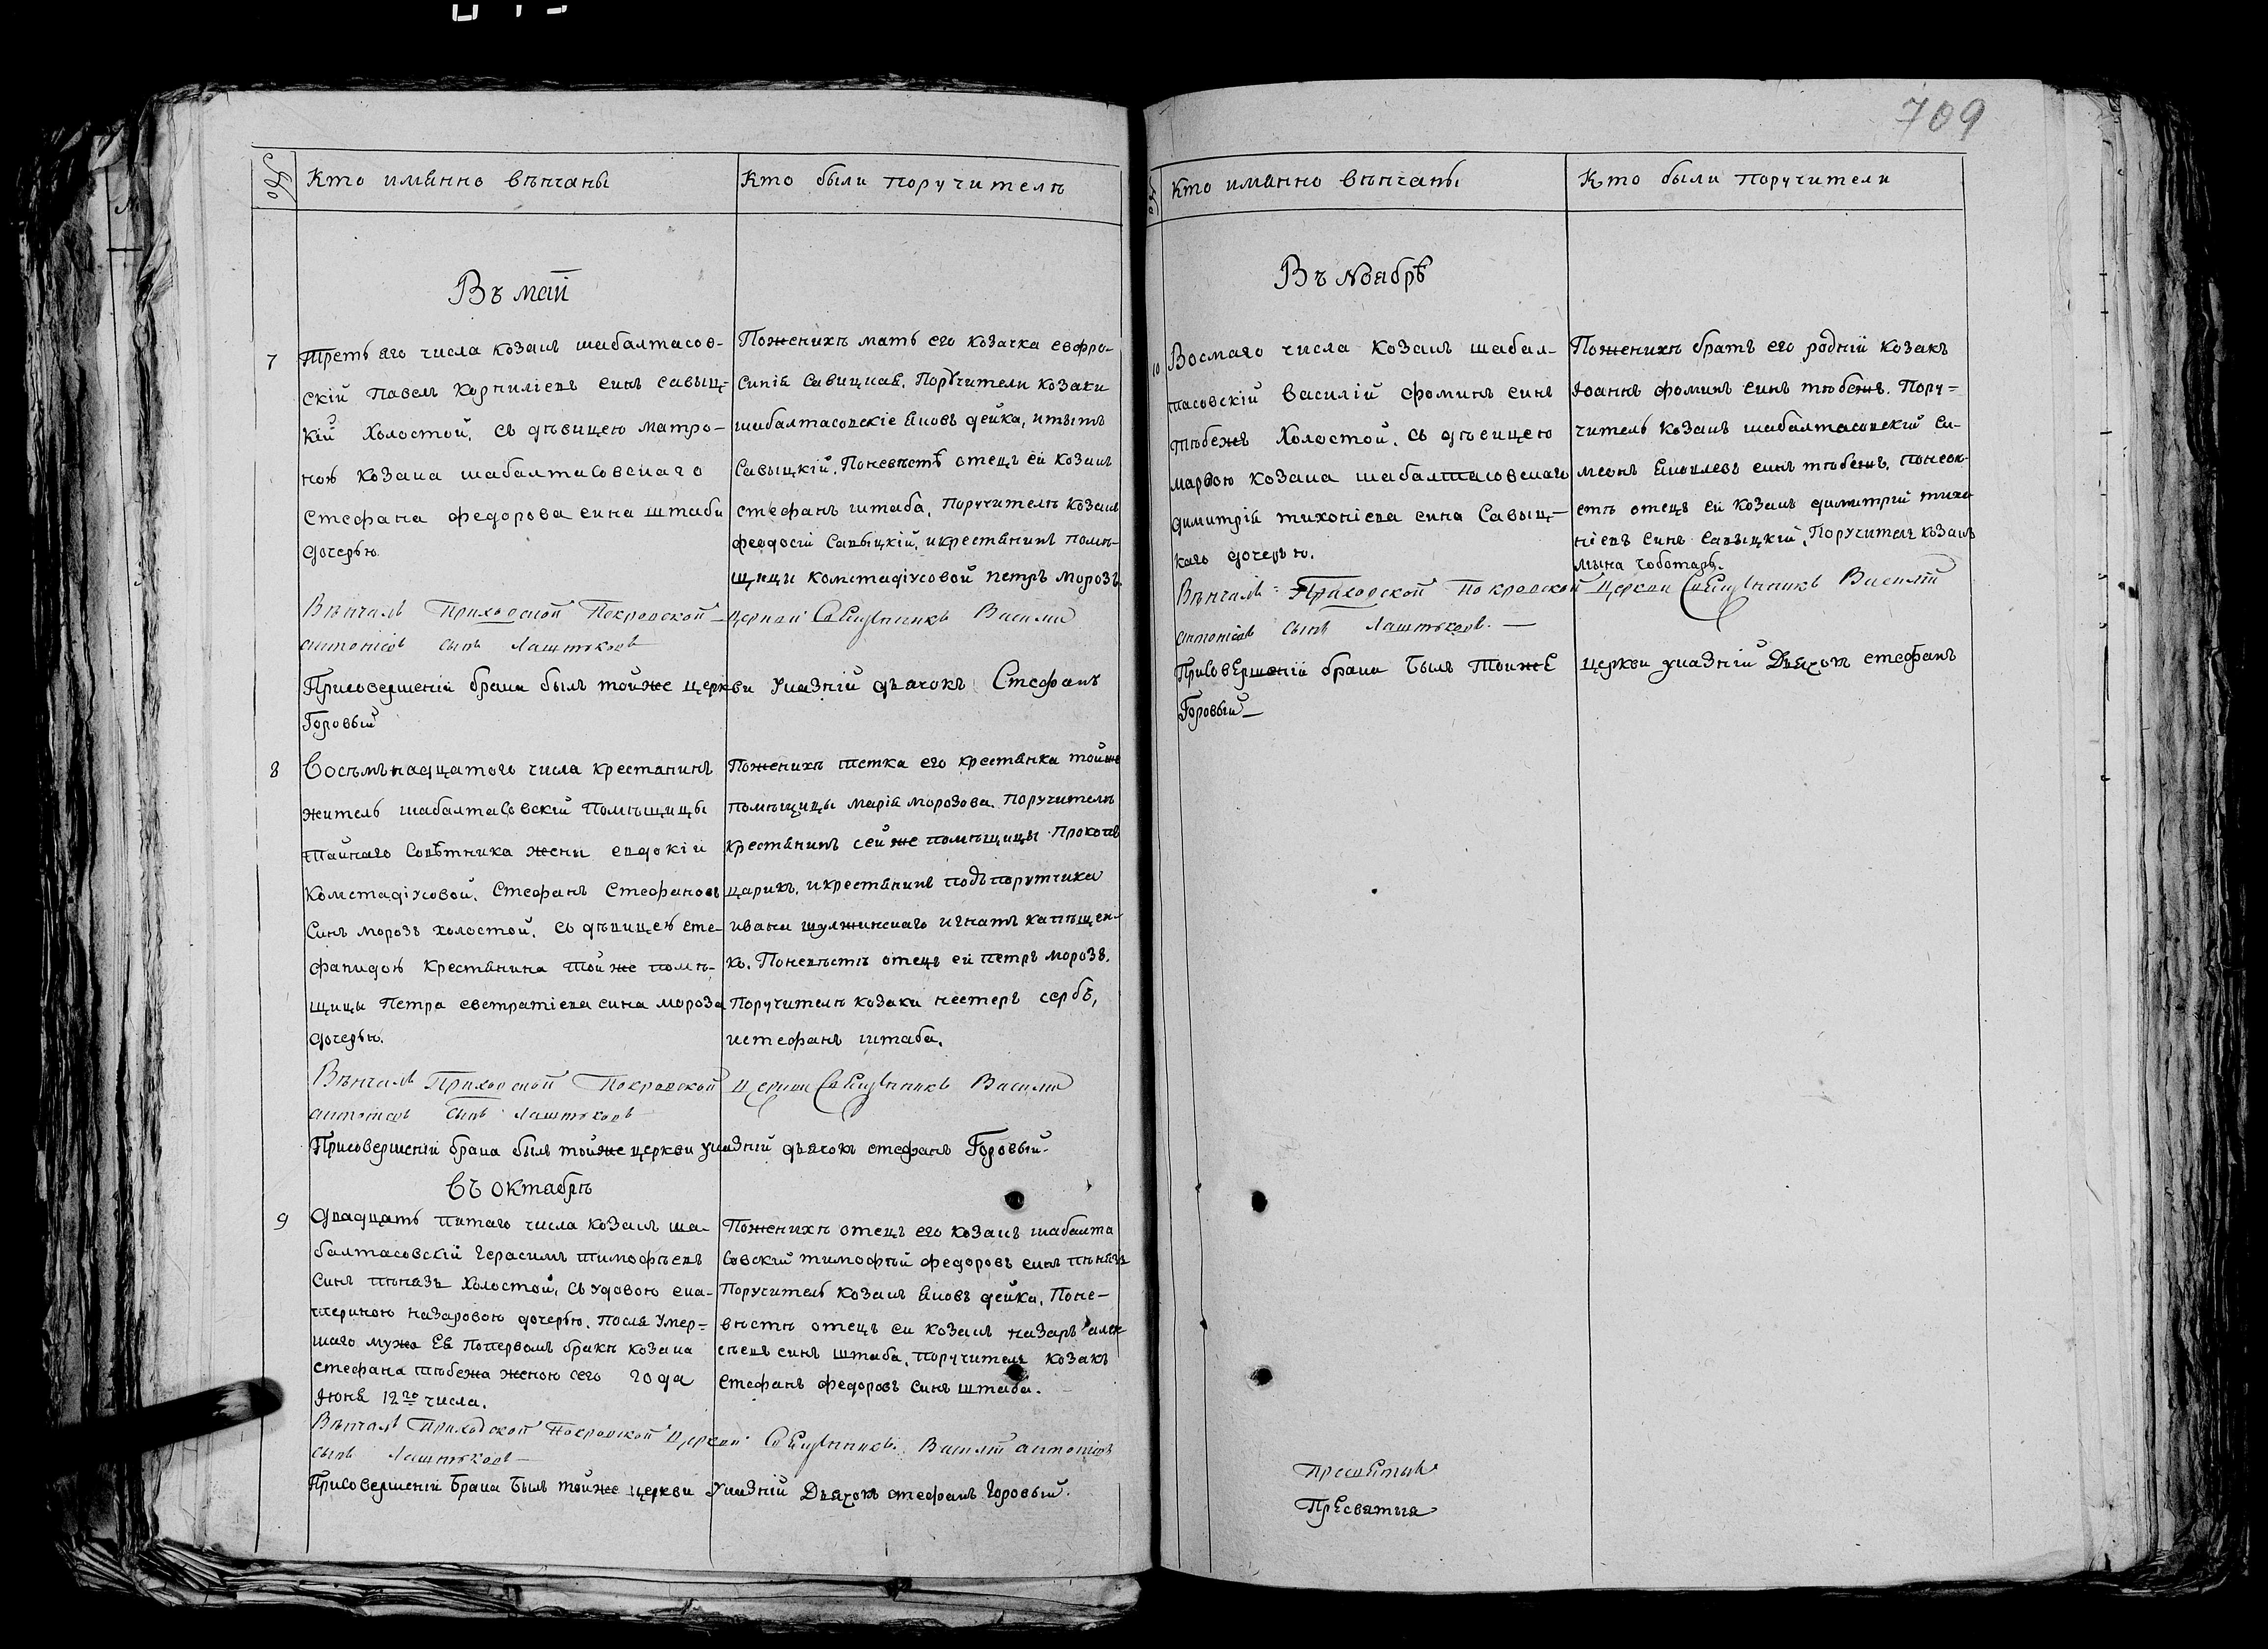 709
Кто имѧнно вѣнчаны
Кто были поручителѣ
Въ маіи
7
Третьяго числа козакъ шабалтасов-
скій Павелъ Корниліевъ синъ савыц-
кій холостой, съ дѣвицею матро-
ною козака шабалтасовскаго
Стефана федорова сина штаби
дочерью.
Поженихѣ мать его козачка евфро-
синія Савицкая. Поручители козаки
шабалтасовскіе Яковъ дейка, итытъ
Савыцкій. Поневѣстѣ отецъ ей козакъ
стефанъ штаба, Поручителѣ козакъ
феодосій Савыцкій, икрестянинъ помѣ-
щици Комстадіусовой петръ морозъ.
Вѣнчалъ Приходской Покровской церкви Священникъ Василій
антоніевъ сынъ Лаштуковъ
Присовершеніи брака былъ тойже церкви указній дьячокъ Стефанъ
Горовый
8
Восѣмьнадцатого числа крестянинъ
житель шабалтасовскій Помѣщицы
тайнаго Совѣтника жени евдокіи
Комстадіусовой, Стефанъ Стефановъ
Синъ морозъ холостой, съ дѣвицею сте-
фанидою крестянина той же помѣ-
щицы Петра евстратіева сина мороза
дочерью.
Поженихѣ тетка его крестянка тойже
помѣщицы марія морозова. Поручителѣ
крестянинъ сей же помѣщицы Прокопъ
царикъ, икрестянинъ подъпорутчика
ивана шулжинскаго игнатъ капѣщен-
ко. Поневѣстѣ отецъ ей петръ морозъ.
Поручителѣ козаки нестеръ сербъ,
истефанъ штаба.
Вѣнчалъ Приходской Покровской церкви Священникъ Василій
антоніевъ сынъ Лаштуковъ
Присовершеніи брака былъ тойже церкви указній дьячокъ стефанъ Горовый.
въ октабрѣ
9
Двадцать пятаго числа козакъ ша-
балтасовскій герасимъ тимофѣевъ
Синъ пѣнязь холостой, съ удовою ека-
териною назаровою дочерью, после умер-
шаго мужа Ея попервомъ бракѣ козака
стефана тѣбежа женою сего года
Июня 12го числа.
Поженихѣ отецъ его козакъ шабалта
совскій тимофѣй федоровъ синъ пѣнязь
Поручитель козакъ Яковъ дейка, Поне-
вѣстѣ отецъ ей козакъ назаръ алек
сѣевъ синъ штаба, поручитель козакъ
стефанъ федоровъ синъ штаба.
Вѣнчалъ Приходской Покровской церкви Священникъ Василій антоніевъ
сынъ Лаштуковъ
Присовершеніи Брака Былъ тойже церкви указній Дьячокъ стефанъ Горовый.
Кто имѧнно вѣнчаны
Кто были поручители
Въ Ноябрѣ
10
Восмаго числа козакъ шабал-
тасовскій василій фоминъ синъ
тѣбежъ холостой, съ дѣвицею
марѳою козака шабалтасовскаго
димитрія тихоніева сина Савыц-
каго дочерью.
Поженихѣ братъ его родній козакъ
Иоаннъ фоминъ синъ тѣбежъ. Пору-
читель козакъ шабалтасовскій си-
меонъ Яковлевъ синъ тѣбежъ. Поневѣ-
стѣ отецъ ей козакъ димитрій тихо
ніевъ синъ Савыцкій, Поручителъ козакъ
мына чоботаръ.
Вѣнчалъ Приходской Покровской церкви Священникъ Василій
антоніевъ сынъ Лаштуковъ.
Присовершеніи брака Былъ тойже церкви указній Дьячокъ стефанъ
Горовый
Пресвятыя
Пресвятыя